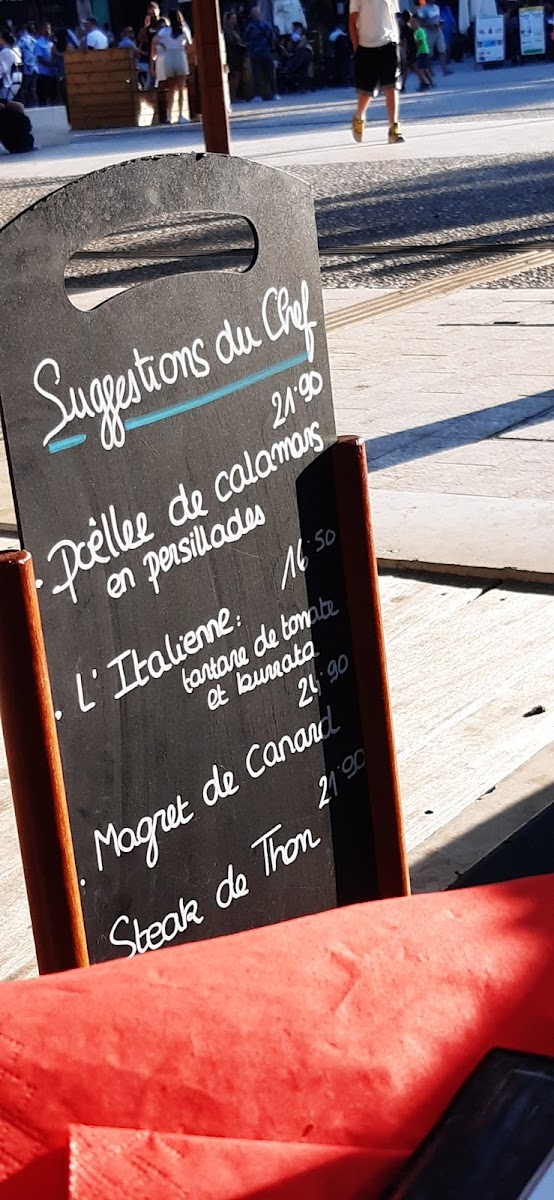 Suggestions du Chef
21.90
. Poêllee de calamars
en persillades
16.50
. L'Italienne:
tartare de tomate
et burrata
24.90
. Magret de Canard
21.90
Steak de Thon